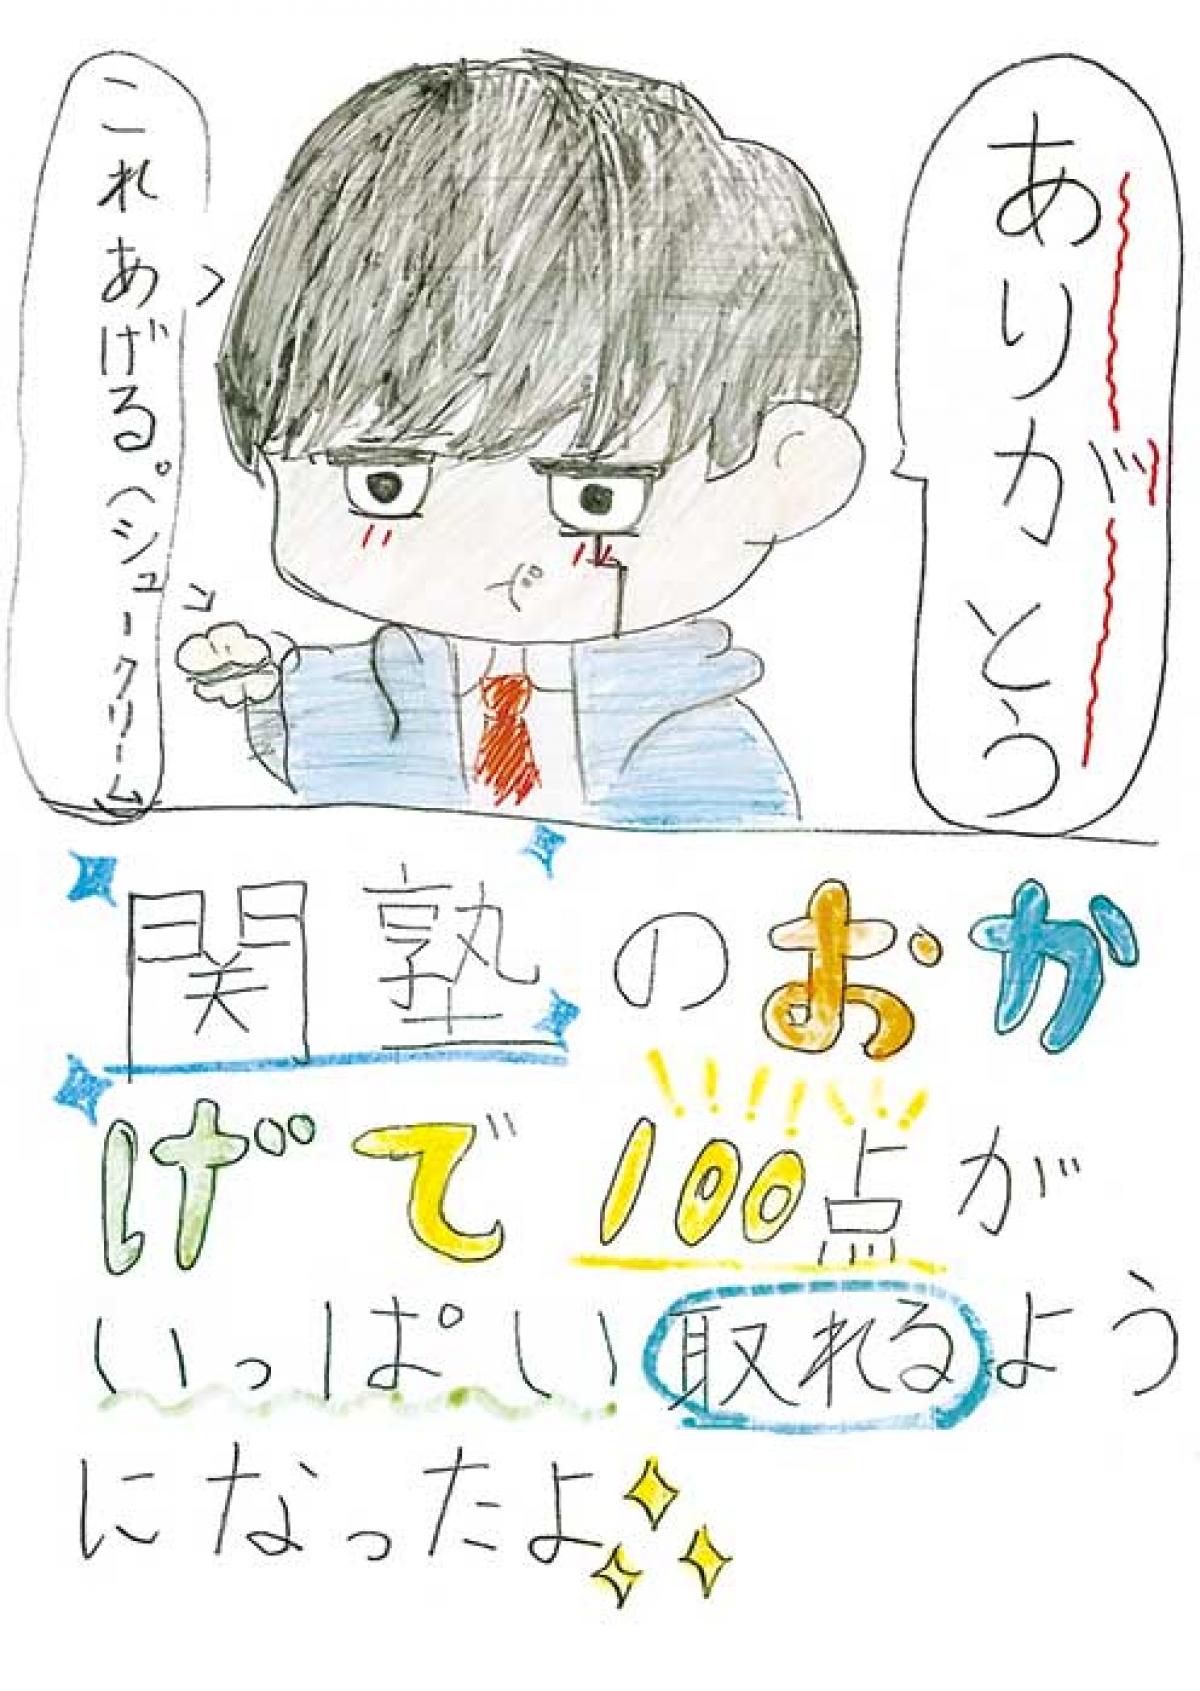 ありがとう
これあげる。(シュークリーム
関塾のおか
げで100点が
いっぱい取れるよう
になったよ